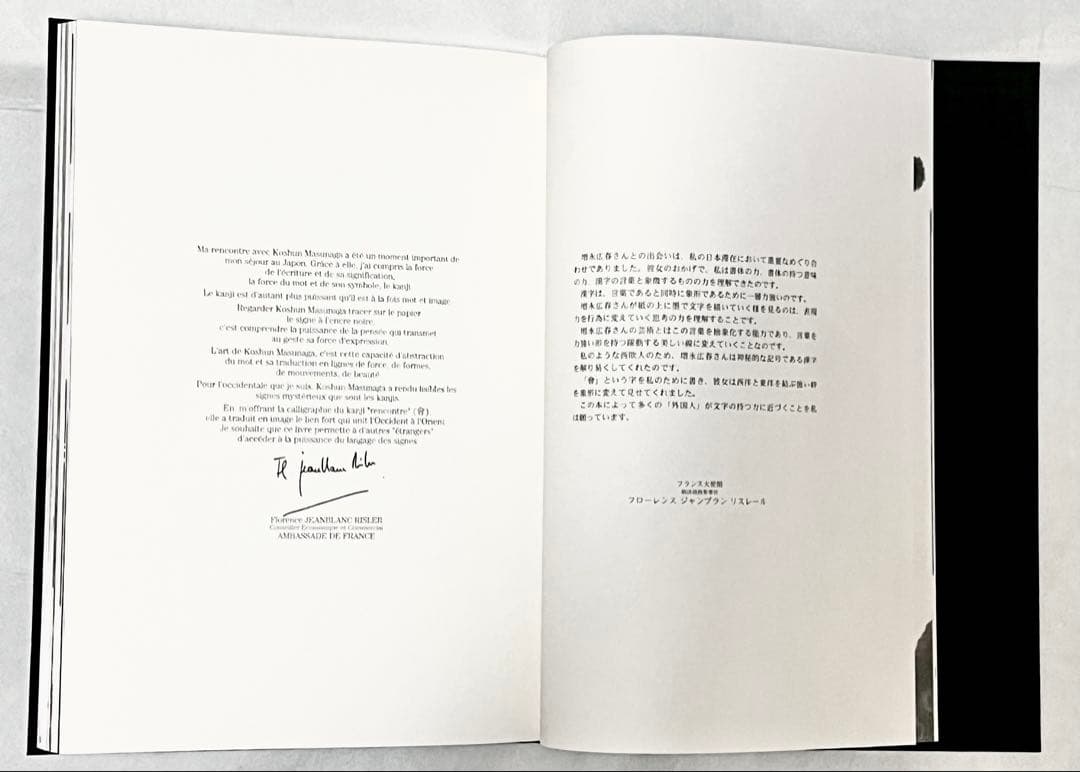 Ma rencontre avec Koshun Masunaga a été un moment important de
mon séjour au Japon. Grâce à elle, j'ai compris la force
de l'écriture et de sa signification,
la force du mot et de son symbole, le kanji.
Le kanji est d'autant plus puissant qu'il est à la fois mot et image.
Regarder Koshun Masunaga tracer sur le papier
le signe à l'encre noire,
c'est comprendre la puissance de la pensée qui transmet
au geste sa force d'expression.
L'art de Koshun Masunaga, c'est cette capacité d'abstraction
du mot et sa traduction en lignes de force, de formes,
de mouvements, de beauté.
Pour l'occidentale que je suis, Koshun Masunaga a rendu lisibles les
signes mystérieux que sont les kanjis.
En m'offrant la calligraphie du kanji "rencontre" (會)
elle a traduit en image le lien fort qui unit l'Occident à l'Orient
Je souhaite que ce livre permette à d'autres "étrangers"
d'accéder à la puissance du langage des signes
Florence JEANBLANC RISLER
Conseiller Economique et Commercial
AMBASSADE DE FRANCE
増永広春さんとの出会いは、私の日本滞在において重要なめぐり合
わせでありました。彼女のおかげで、私は書体の力、書体の持つ意味
の力、漢字の言葉と象徴するものの力を理解できたのです。
漢字は、言葉であると同時に象形であるために一層力強いのです。
増永広春さんが紙の上に墨で文字を描いていく様を見るのは、表現
力を行為に変えていく思考の力を理解することです。
増永広春さんの芸術とはこの言葉を抽象化する能力であり、言葉を
力強い形を持つ躍動する美しい線に変えていくことなのです。
私のような西欧人のため、増永広春さんは神秘的な記号である漢字
を解り易くしてくれたのです。
「會」という字を私のために書き、彼女は西洋と東洋を結ぶ強い絆
を象形に変えて見せてくれました。
この本によって多くの「外国人」が文字の持つ力に近づくことを私
は願っています。
フランス大使館
フローレンス ジャンブラン リスレール